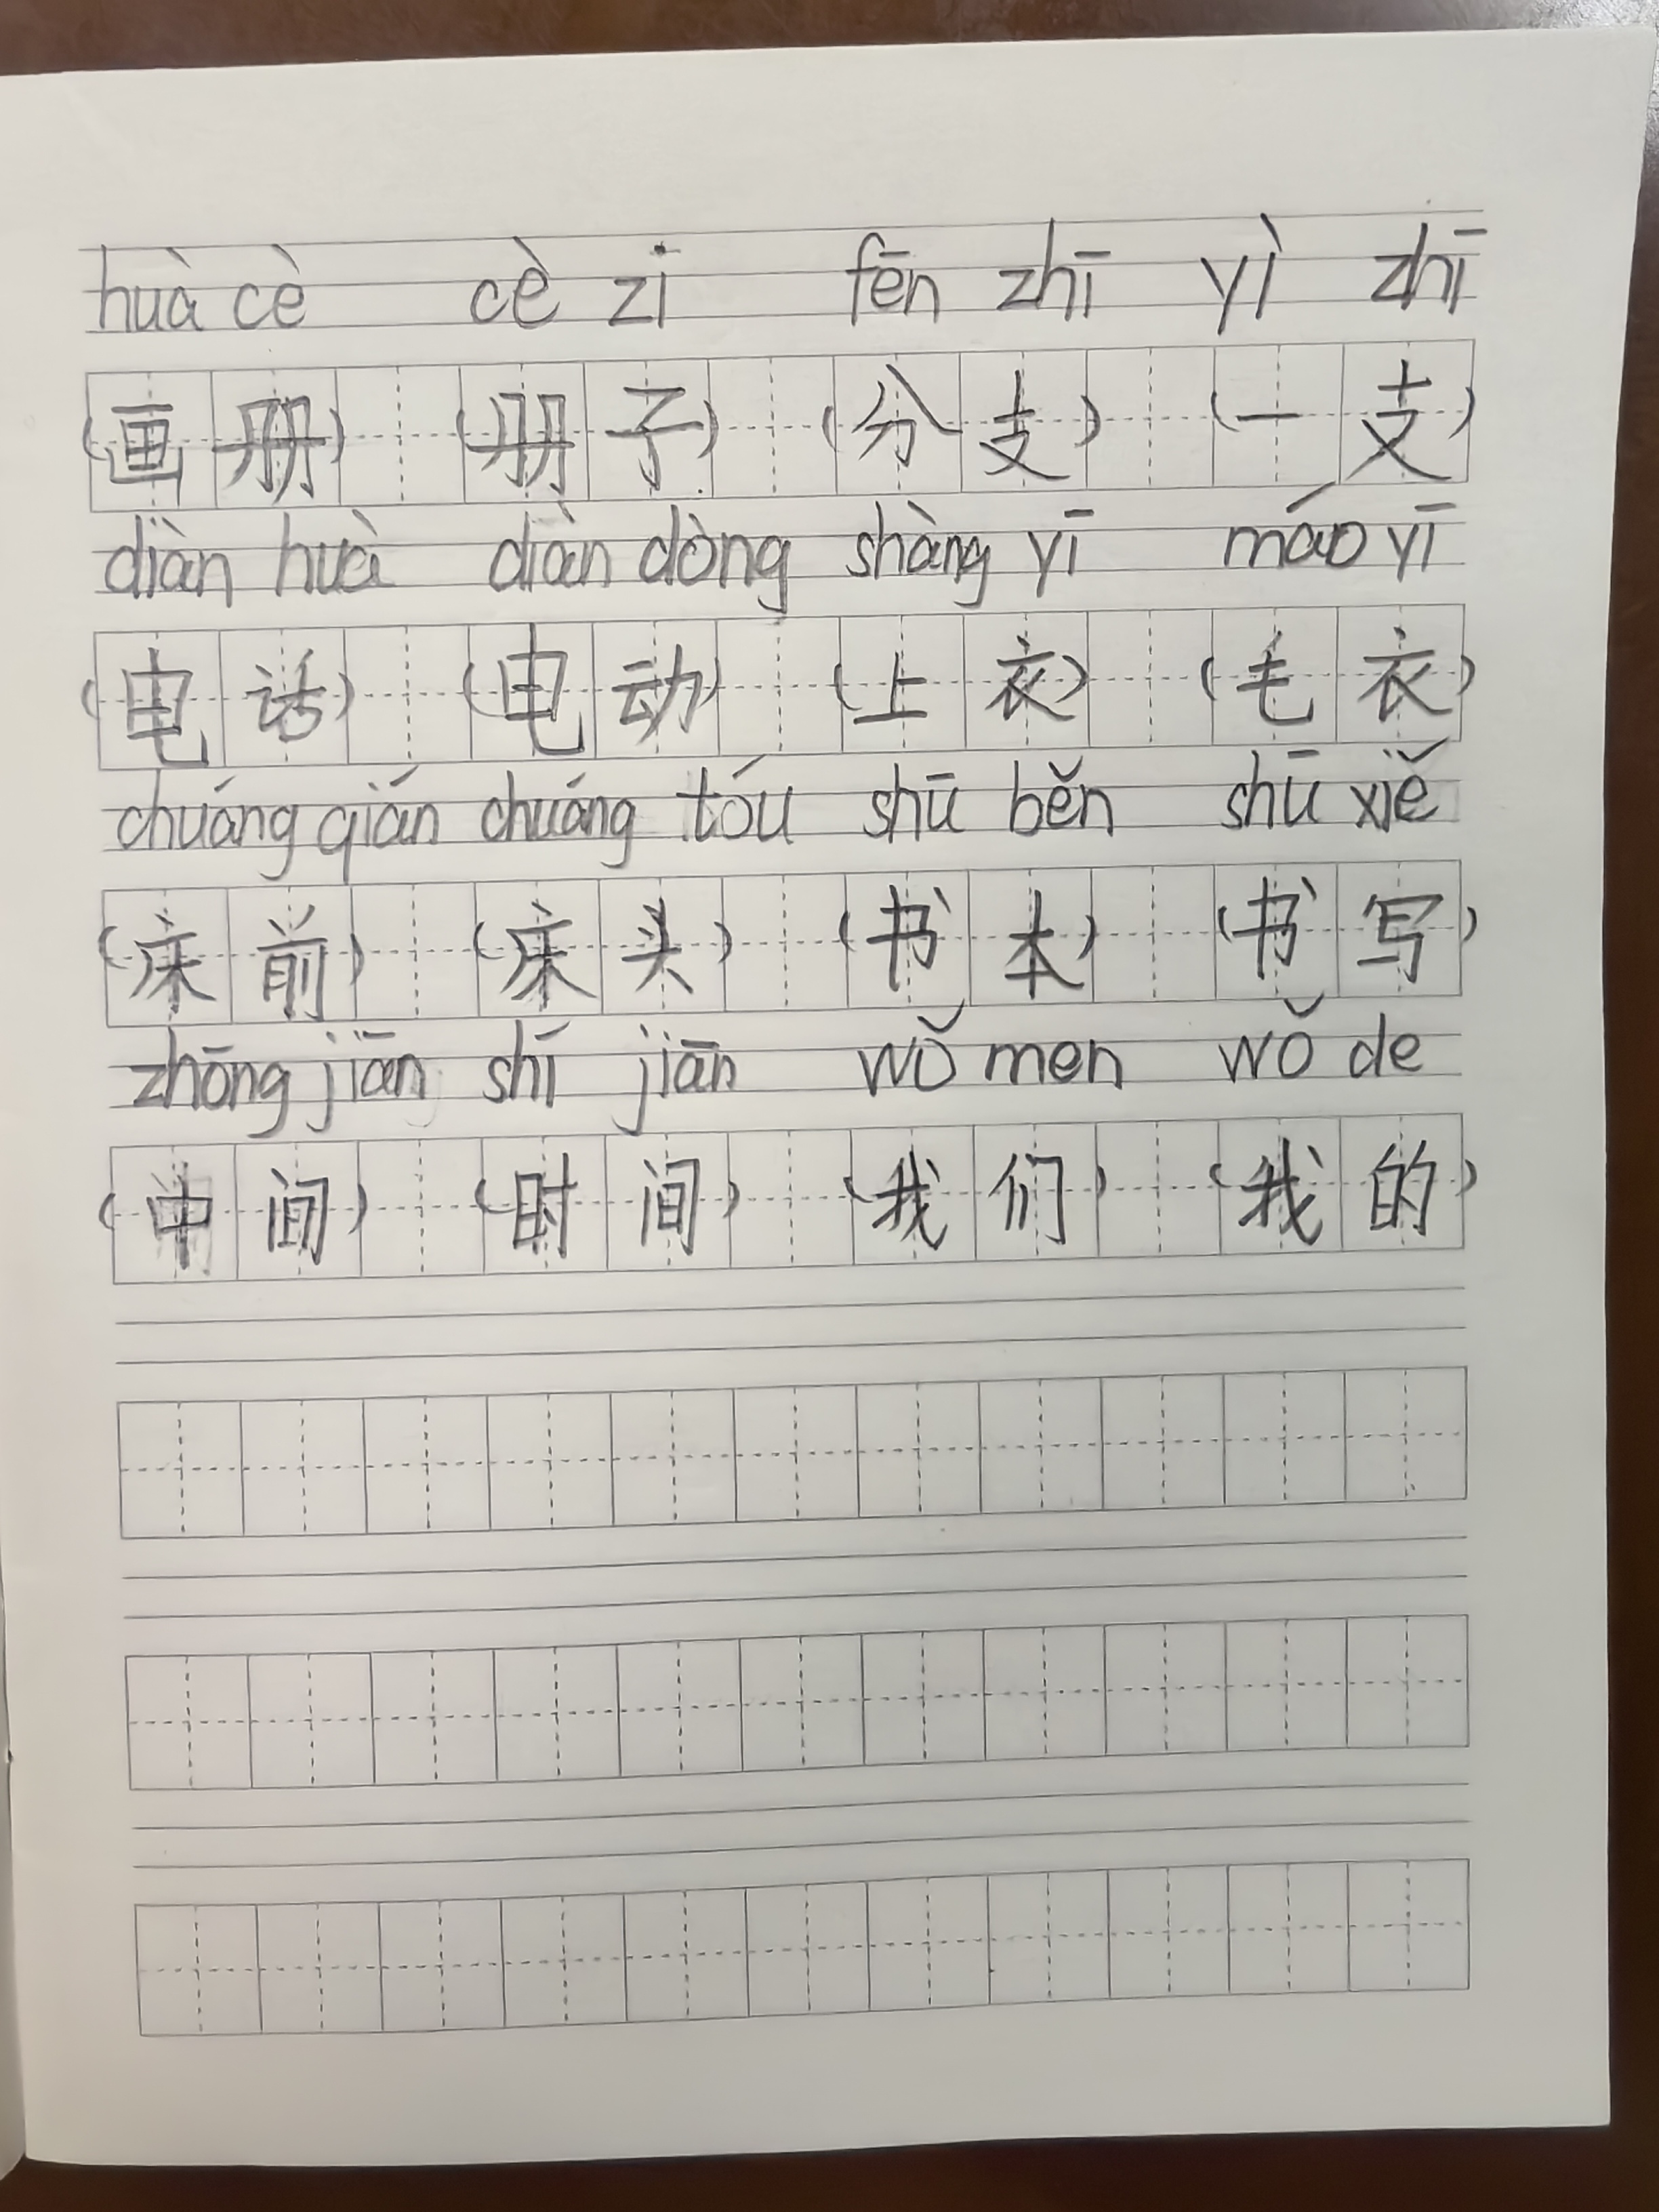 huà cè cè zi fēn zhī yì zhī
(画册) (册子) (分支) (一支)
diàn huà diàn dòng shàng yī máo yī
(电话) (电动) (上衣) (毛衣)
chuáng qián chuáng tóu shū běn shū xiě
(床前) (床头) (书本) (书写)
zhōng jiān shí jiān wǒ men wǒ de
(中间) (时间) (我们) (我的)